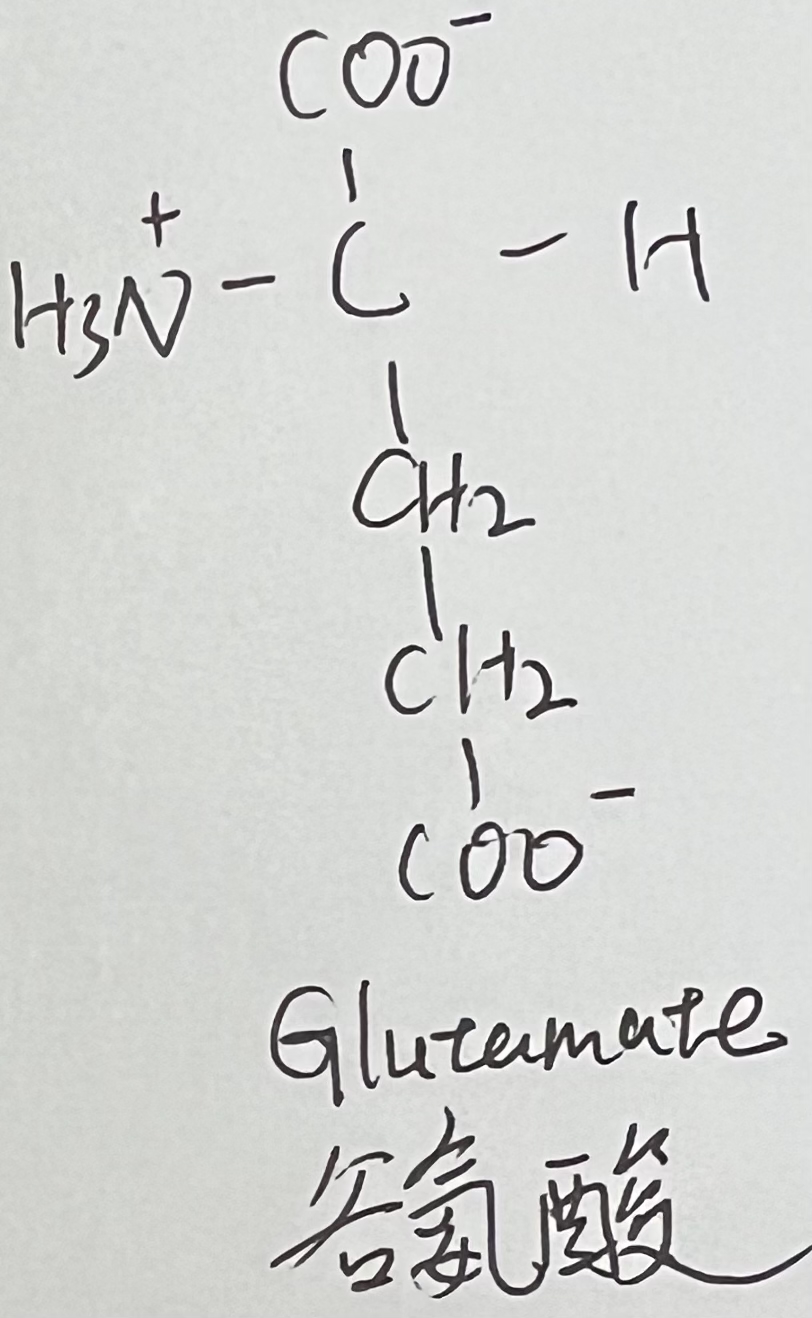 COO⁻
H₃N⁺ - C - H
CH₂
CH₂
COO⁻
Glutamate
谷氨酸